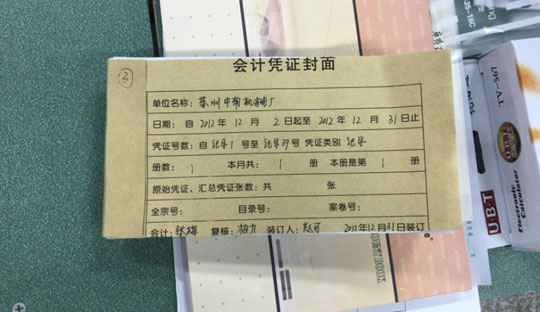 ②
会计凭证封面
单位名称：苏州中帮机械厂
日期：自2012年12月2日起至2012年12月31日止
凭证号数：自记字1号至记字39号 凭证类别 记字
册数：1 本月共：1册 本册是第1册
原始凭证、汇总凭证张数：共 张
全宗号： 目录号： 案卷号：
会计：张梅 复核：柏力 装订人：赵可 2012年12月31日装订
TV-567
U·B·T
Electronic
Calculator